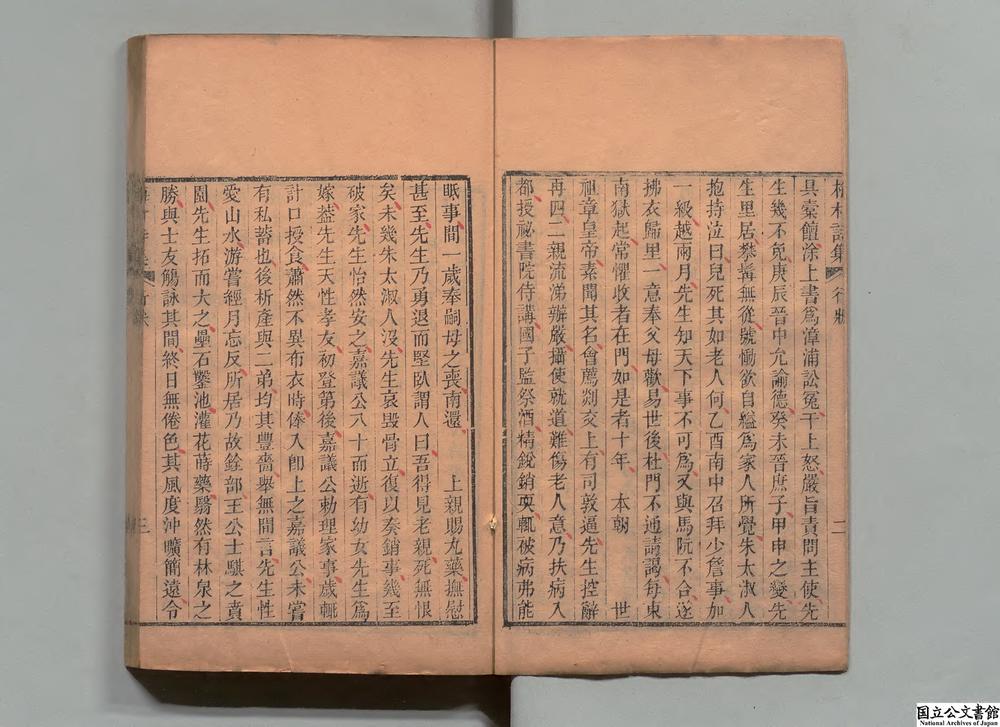 梅村詩集 行狀 二
具橐饘涂上書爲漳浦訟冤干上怒嚴旨責問主使先
生幾不免庚辰晉中允諭德癸未晉庶子甲申之變先
生里居攀髯無從號慟欲自縊爲家人所覺朱太淑人
抱持泣曰兒死其如老人何乙酉南中召拜少詹事加
一級越兩月先生知天下事不可爲又與馬阮不合遂
拂衣歸里一意奉父母歡易世後杜門不通請謁每東
南獄起常懼收者在門如是者十年 本朝 世
祖章皇帝素聞其名會薦剡交上有司敦逼先生控辭
再四二親流涕辦嚴攝使就道難傷老人意乃扶病入
都授祕書院侍講國子監祭酒精銳銷耎輒破病弗能
眂事間一歲奉嗣母之喪南還 上親賜丸藥撫慰
甚至先生乃勇退而堅臥謂人曰吾得見老親死無恨
矣未幾朱太淑人沒先生哀毀骨立復以奏銷事幾至
破家先生怡然安之嘉議公八十而逝有幼女先生爲
嫁葢先生天性孝友初登第後嘉議公勅理家事歲輒
計口授食蕭然不異布衣時俸入卽上之嘉議公未嘗
有私蓄也後析產與二弟均其豐嗇舉無間言先生性
愛山水游嘗經月忘反所居乃故銓部王公士騏之賁
園先生拓而大之壘石鑿池灌花蒔藥翳然有林泉之
勝與士友觴詠其間終日無倦色其風度沖曠簡遠令
三
国立公文書館
National Archives of Japan